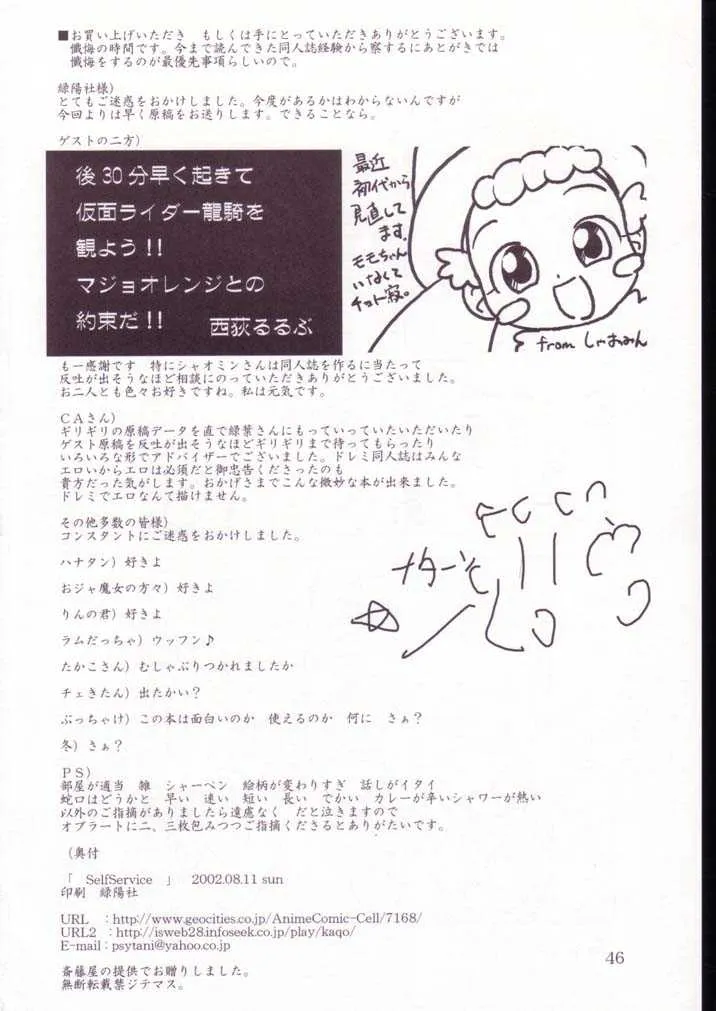 ■お買い上げいただき　もしくは手にとっていただきありがとうございます。
懺悔の時間です。今まで読んできた同人誌経験から察するにあとがきでは
懺悔をするのが最優先事項らしいので。
緑陽社様）
とてもご迷惑をおかけしました。今度があるかはわからないんですが
今回よりは早く原稿をお送りします。できることなら。
ゲストの二方）
後30分早く起きて
仮面ライダー龍騎を
観よう!!
マジョオレンジとの
約束だ!!　西荻るるぶ
最近
初代から
見直して
ます。
モモちゃん
いなくて
チット寂。
from しゃおみん
も一感謝です　特にシャオミンさんは同人誌を作るに当たって
反吐が出そうなほど相談にのっていただきありがとうございました。
お二人とも色々お好きですね。私は元気です。
CAさん）
ギリギリの原稿データを直で緑葉さんにもっていっていたいただいたり
ゲスト原稿を反吐が出そうなほどギリギリまで待ってもらったり
いろいろな形でアドバイザーでございました。ドレミ同人誌はみんな
エロいからエロは必須だと御忠告くださったのも
貴方だった気がします。おかげさまでこんな微妙な本が出来ました。
ドレミでエロなんて描けません。
その他多数の皆様）
コンスタントにご迷惑をおかけしました。
ハナタン）好きよ
おジャ魔女の方々）好きよ
りんの君）好きよ
ラムだっちゃ）ウッフン♪
たかこさん）むしゃぶりつかれましたか
チェきたん）出たかい？
ぶっちゃけ）この本は面白いのか　使えるのか　何に　さぁ？
冬）さぁ？
PS）
部屋が適当　雑　シャーペン　絵柄が変わりすぎ　話しがイタイ
蛇口はどうかと　早い　速い　短い　長い　でかい　カレーが辛いシャワーが熱い
以外のご指摘がありましたら遠慮なく　だと泣きますので
オブラートに二、三枚包みつつご指摘くださるとありがたいです。
（奥付
「　SelfService　」　2002.08.11 sun
印刷　緑陽社
URL　：http://www.geocities.co.jp/AnimeComic-Cell/7168/
URL2　：http://isweb28.infoseek.co.jp/play/kaqo/
E-mail：psytani@yahoo.co.jp
斎藤屋の提供でお贈りしました。
無断転載禁ジテマス。
46